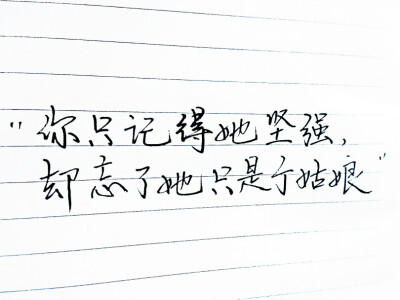 "你只记得她坚强,
却忘了她只是个姑娘"